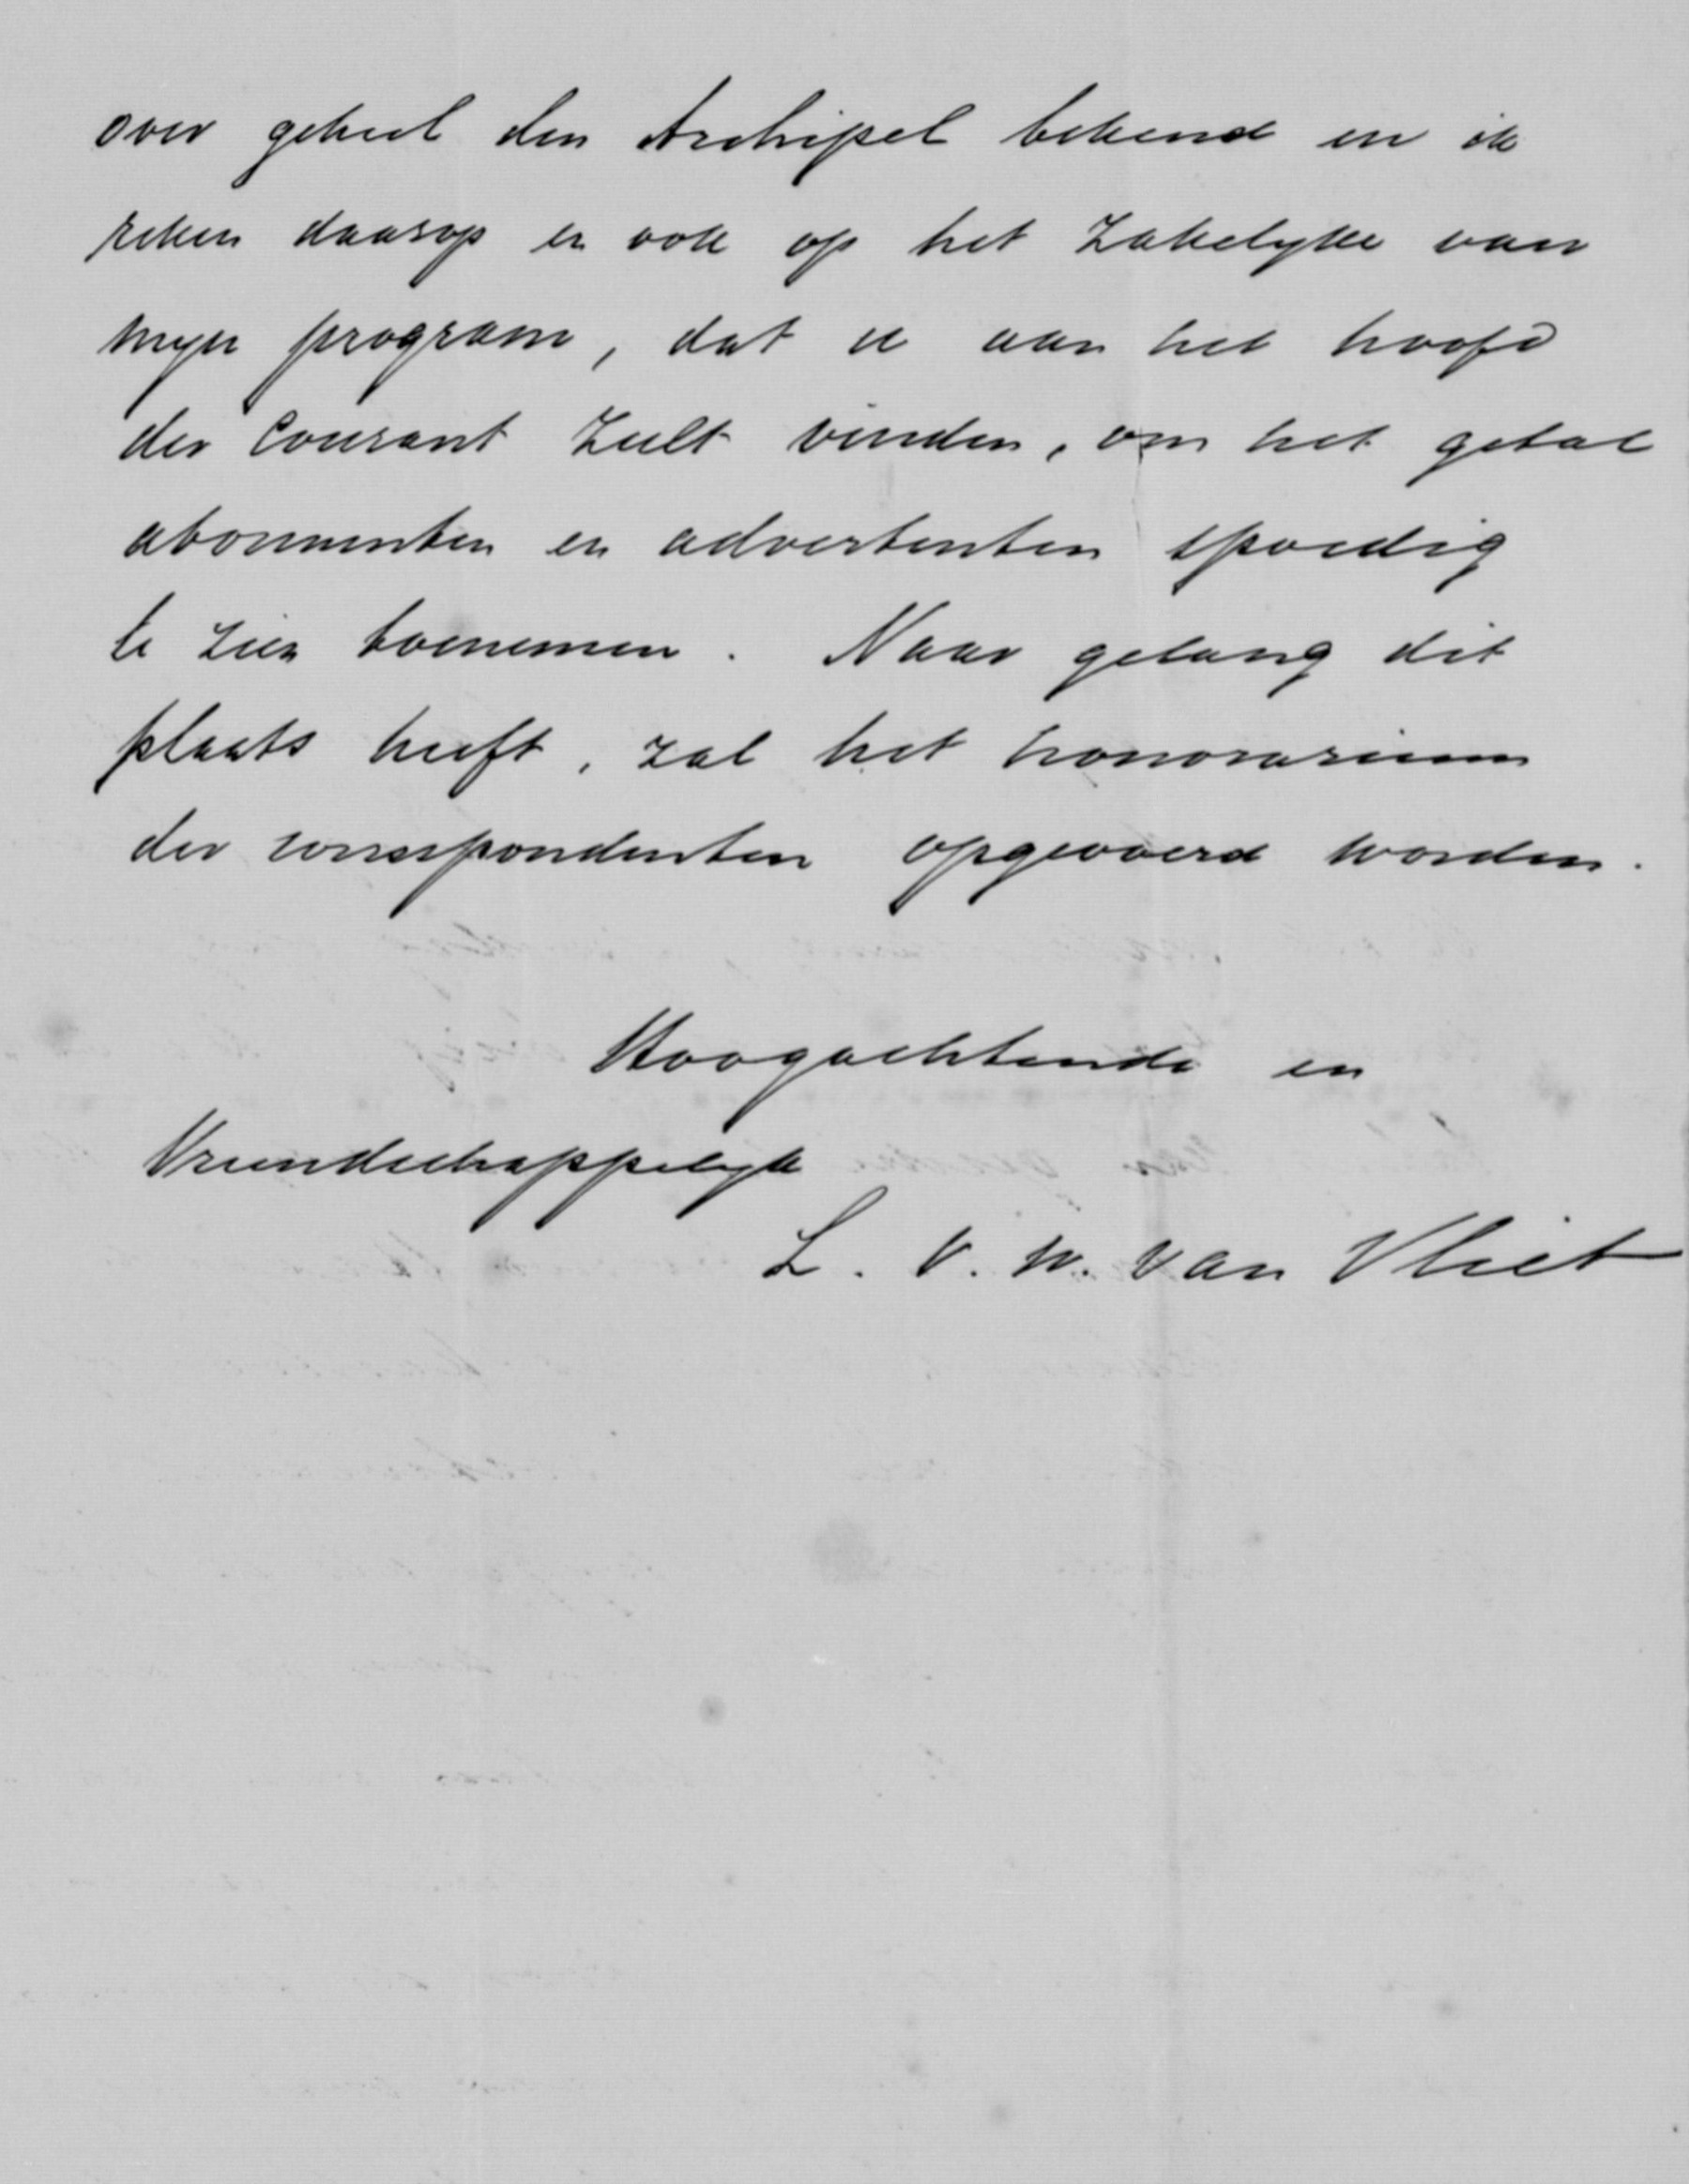 over geheel den Archipel bekend en ik
reken daarop en ook op het zakelyke van
myn program, dat u aan het hoofd
der Courant zult vinden, om het getal
abonnenten en advertenten spoedig
te zien toenemen. Naar gelang dit
plaats heeft, zal het honorarium
der correspondenten opgevoerd worden.
Hoogachtende en
Vriendschappelyk
L. V. W. van Vliet